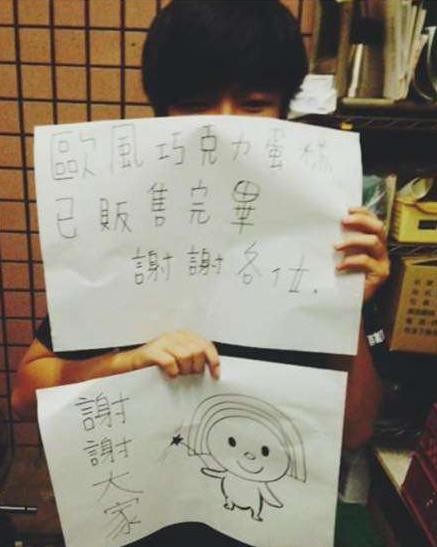 歐風巧克力蛋糕
已販售完畢
謝謝各位.
謝謝大家